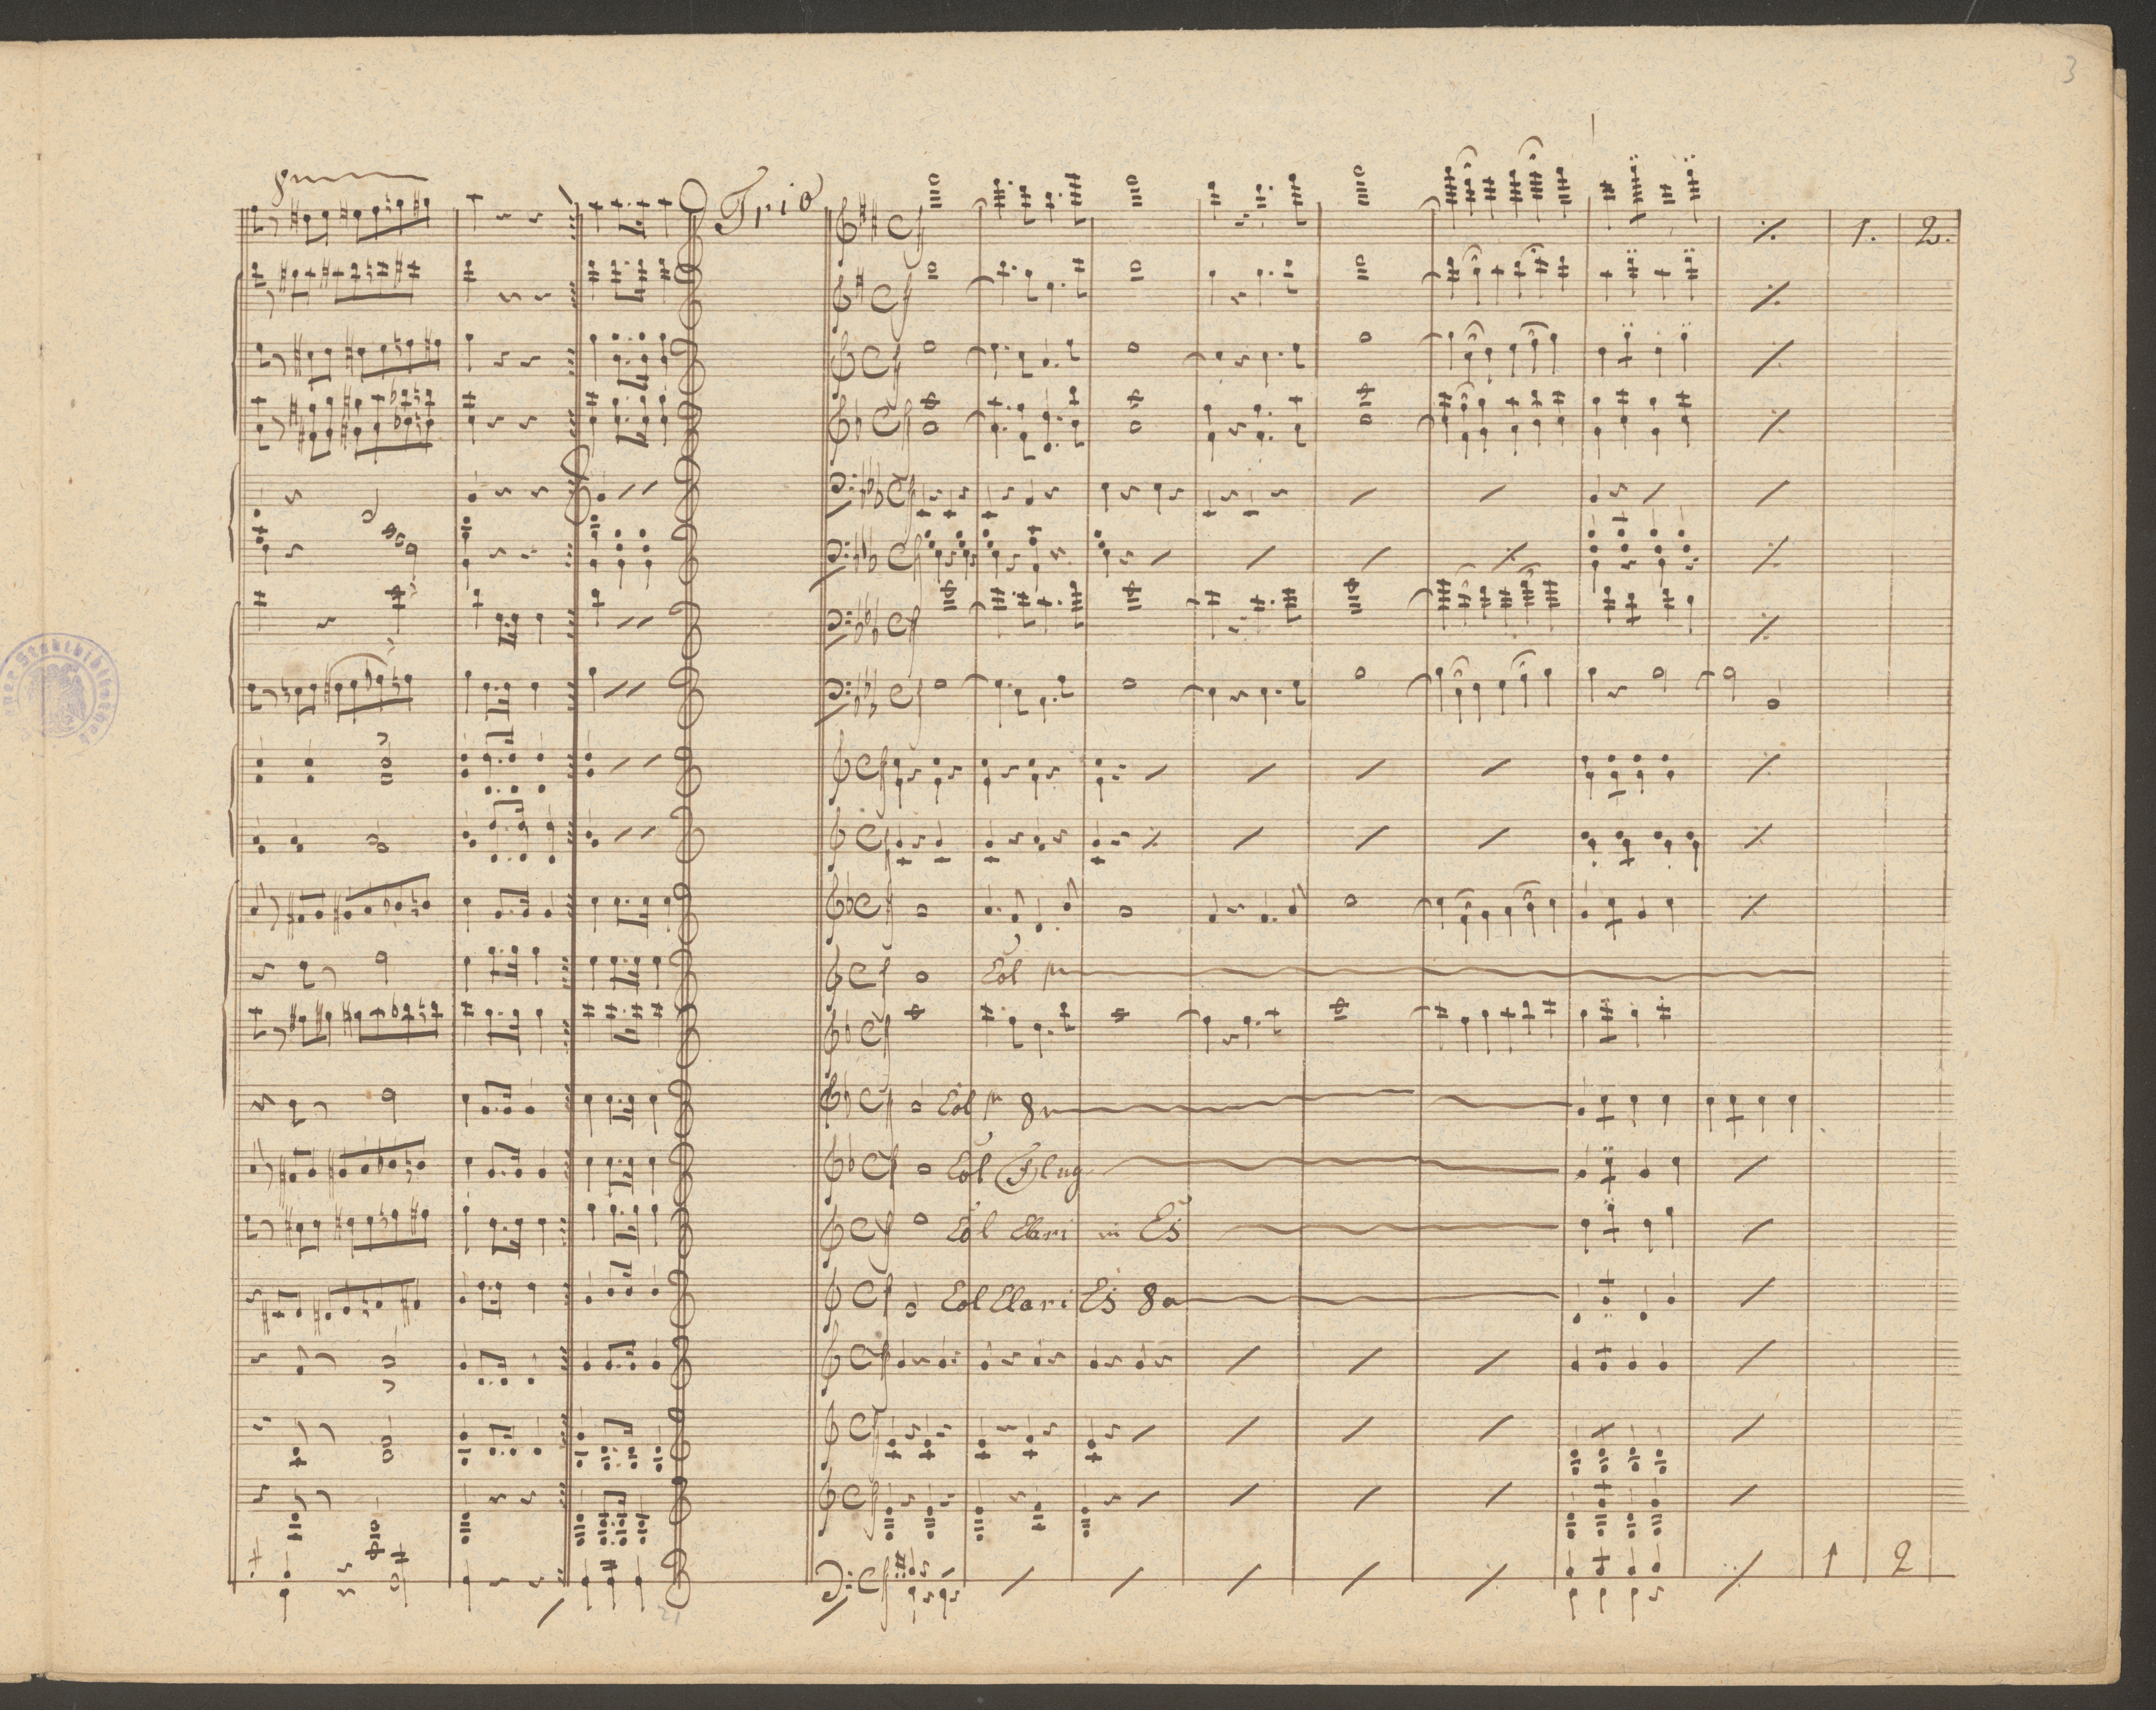 3
8
Trio
1. 2.
Col
Col 8
Col Flug
Col Clari in Es
Col Clari Es 8a
1 2